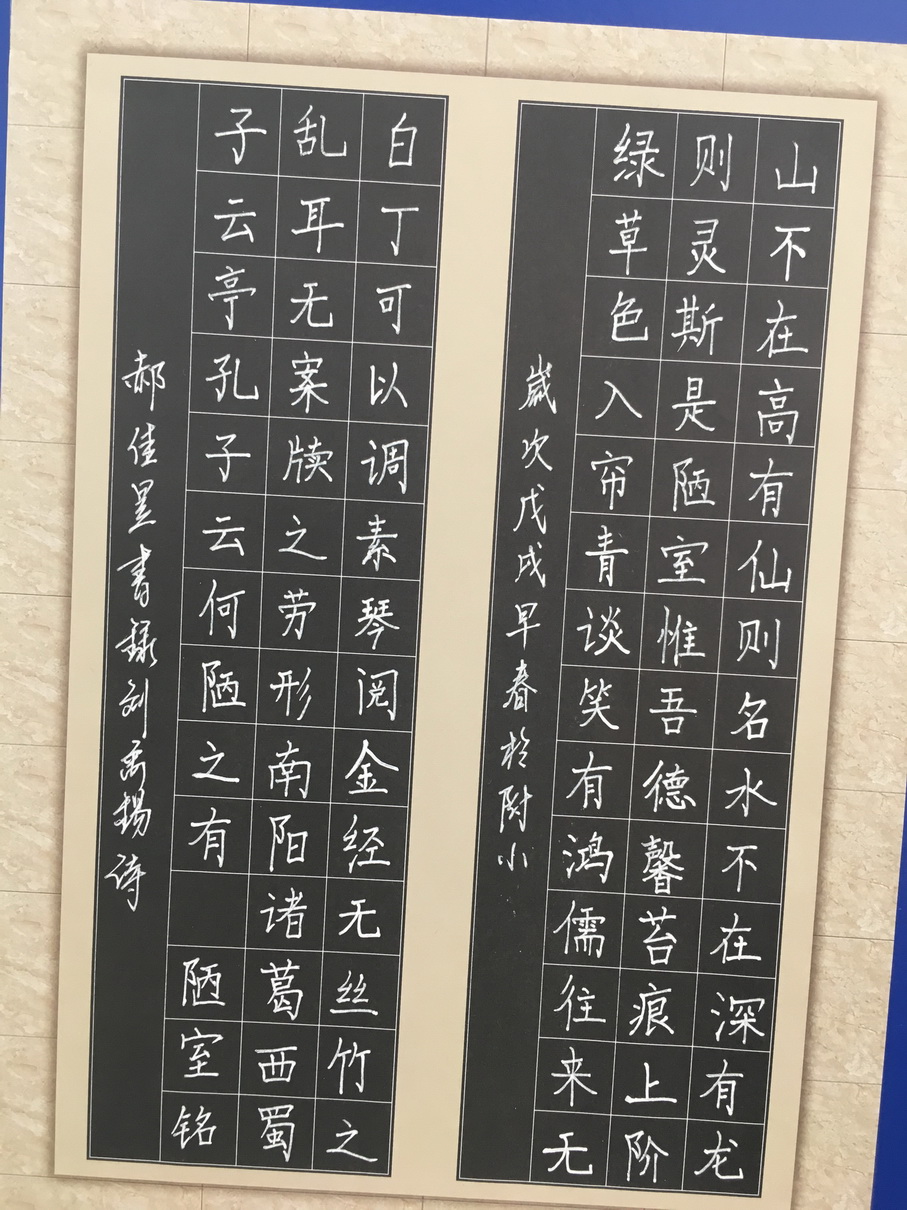 山不在高有仙则名水不在深有龙
则灵斯是陋室惟吾德馨苔痕上阶
绿草色入帘青谈笑有鸿儒往来无
岁次戊戌早春於附小
白丁可以调素琴阅金经无丝竹之
乱耳无案牍之劳形南阳诸葛西蜀
子云亭孔子云何陋之有 陋室铭
郝佳昱書録刘禹锡诗